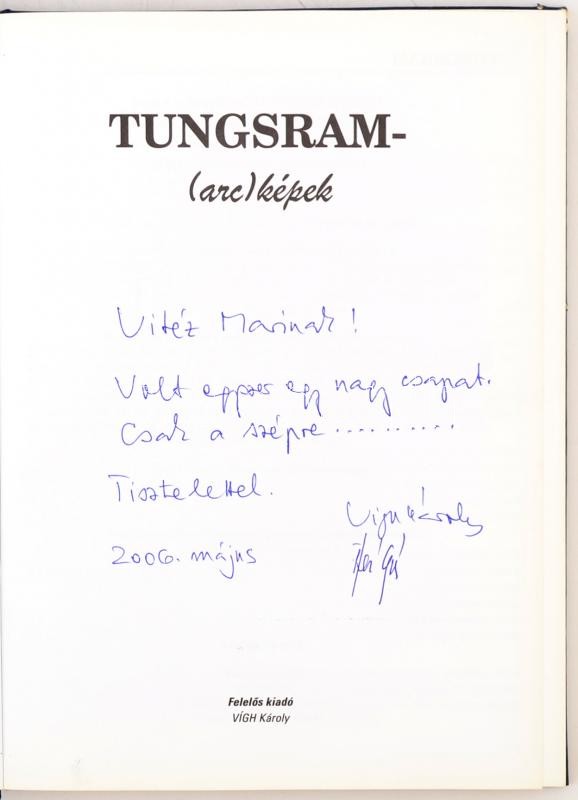 TUNGSRAM-
(arc)képek
Vitéz Marinak!
Volt egyszer egy nagy csapat.
Csak a szépre ..........
Tisztelettel.
Vígh Károly
2006. május
Felelős kiadó
VÍGH Károly